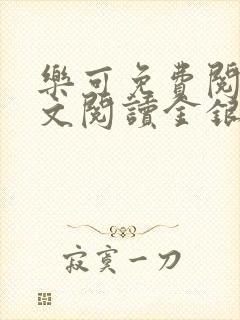 樂可免費閱
文閱讀金銀
寂寞一刀